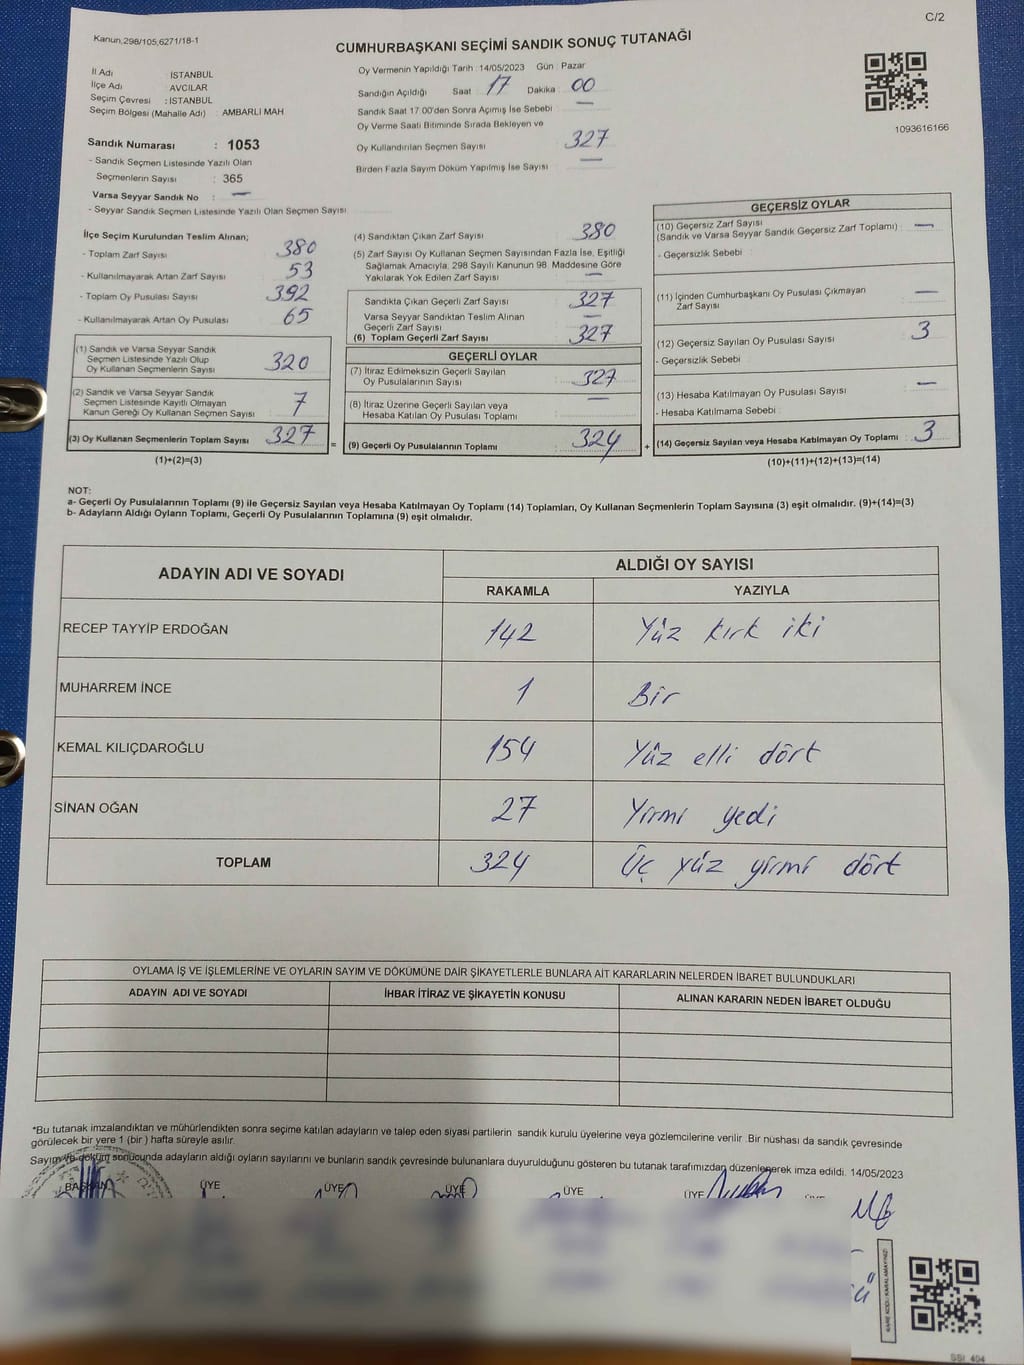 C/2
Kanun,298/105,6271/18-1
CUMHURBAŞKANI SEÇİMİ SANDIK SONUÇ TUTANAĞI
İl Adı İSTANBUL
İlçe Adı AVCILAR
Seçim Çevresi : İSTANBUL
Seçim Bölgesi (Mahalle Adı) : AMBARLI MAH
Oy Vermenin Yapıldığı Tarih : 14/05/2023 Gün : Pazar
Sandığın Açıldığı Saat 17 Dakika 00
Sandık Saat 17.00'den Sonra Açımış İse Sebebi —
Oy Verme Saati Bitiminde Sırada Bekleyen ve
Oy Kullandırılan Seçmen Sayısı 327
Birden Fazla Sayım Döküm Yapılmış İse Sayısı —
1093616166
Sandık Numarası : 1053
- Sandık Seçmen Listesinde Yazılı Olan
Seçmenlerin Sayısı : 365
Varsa Seyyar Sandık No : —
- Seyyar Sandık Seçmen Listesinde Yazılı Olan Seçmen Sayısı
İlçe Seçim Kurulundan Teslim Alınan;
- Toplam Zarf Sayısı 380
- Kullanılmayarak Artan Zarf Sayısı 53
- Toplam Oy Pusulası Sayısı 392
- Kullanılmayarak Artan Oy Pusulası 65
(1) Sandık ve Varsa Seyyar Sandık
Seçmen Listesinde Yazılı Olup
Oy Kullanan Seçmenlerin Sayısı 320
(2) Sandık ve Varsa Seyyar Sandık
Seçmen Listesinde Kayıtlı Olmayan
Kanun Gereği Oy Kullanan Seçmen Sayısı 7
(3) Oy Kullanan Seçmenlerin Toplam Sayısı 327 =
(1)+(2)=(3)
(4) Sandıktan Çıkan Zarf Sayısı 380
(5) Zarf Sayısı Oy Kullanan Seçmen Sayısından Fazla İse, Eşitliği
Sağlamak Amacıyla, 298 Sayılı Kanunun 98. Maddesine Göre
Yakılarak Yok Edilen Zarf Sayısı —
Sandıkta Çıkan Geçerli Zarf Sayısı 327
Varsa Seyyar Sandıktan Teslim Alınan
Geçerli Zarf Sayısı —
(6) Toplam Geçerli Zarf Sayısı 327
GEÇERLİ OYLAR
(7) İtiraz Edilmeksizin Geçerli Sayılan
Oy Pusulalarının Sayısı 327
(8) İtiraz Üzerine Geçerli Sayılan veya
Hesaba Katılan Oy Pusulası Toplamı —
(9) Geçerli Oy Pusulalarının Toplamı 324 +
GEÇERSİZ OYLAR
(10) Geçersiz Zarf Sayısı
(Sandık ve Varsa Seyyar Sandık Geçersiz Zarf Toplamı) : —
- Geçersizlik Sebebi :
(11) İçinden Cumhurbaşkanı Oy Pusulası Çıkmayan
Zarf Sayısı —
(12) Geçersiz Sayılan Oy Pusulası Sayısı 3
- Geçersizlik Sebebi
(13) Hesaba Katılmayan Oy Pusulası Sayısı —
- Hesaba Katılmama Sebebi :
(14) Geçersiz Sayılan veya Hesaba Katılmayan Oy Toplamı : 3
(10)+(11)+(12)+(13)=(14)
NOT:
a- Geçerli Oy Pusulalarının Toplamı (9) ile Geçersiz Sayılan veya Hesaba Katılmayan Oy Toplamı (14) Toplamları, Oy Kullanan Seçmenlerin Toplam Sayısına (3) eşit olmalıdır. (9)+(14)=(3)
b- Adayların Aldığı Oyların Toplamı, Geçerli Oy Pusulalarının Toplamına (9) eşit olmalıdır.
ADAYIN ADI VE SOYADI ALDIĞI OY SAYISI
RAKAMLA YAZIYLA
RECEP TAYYİP ERDOĞAN 142 Yüz kırk iki
MUHARREM İNCE 1 Bir
KEMAL KILIÇDAROĞLU 154 Yüz elli dört
SİNAN OĞAN 27 Yirmi yedi
TOPLAM 324 Üç yüz yirmi dört
OYLAMA İŞ VE İŞLEMLERİNE VE OYLARIN SAYIM VE DÖKÜMÜNE DAİR ŞİKAYETLERLE BUNLARA AİT KARARLARIN NELERDEN İBARET BULUNDUKLARI
ADAYIN ADI VE SOYADI İHBAR İTİRAZ VE ŞİKAYETİN KONUSU ALINAN KARARIN NEDEN İBARET OLDUĞU
*Bu tutanak imzalandıktan ve mühürlendikten sonra seçime katılan adayların ve talep eden siyasi partilerin sandık kurulu üyelerine veya gözlemcilerine verilir .Bir nushası da sandık çevresinde
görülecek bir yere 1 (bir ) hafta süreyle asılır.
Sayım ve döküm sonucunda adayların aldığı oyların sayılarını ve bunların sandık çevresinde bulunanlara duyurulduğunu gösteren bu tutanak tarafımızdan düzenlenerek imza edildi. 14/05/2023
BAŞKAN ÜYE ÜYE ÜYE ÜYE ÜYE
KARE KODU KARALAMAYINIZ!